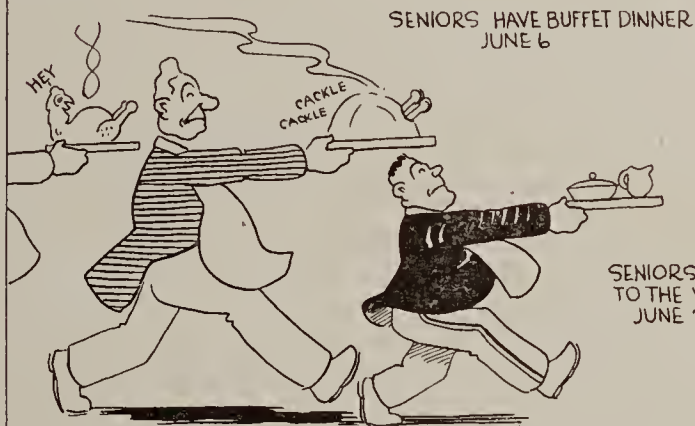 SENIORS HAVE BUFFET DINNER
JUNE 6
HEY
CACKLE
CACKLE
SENIORS
TO THE
JUNE